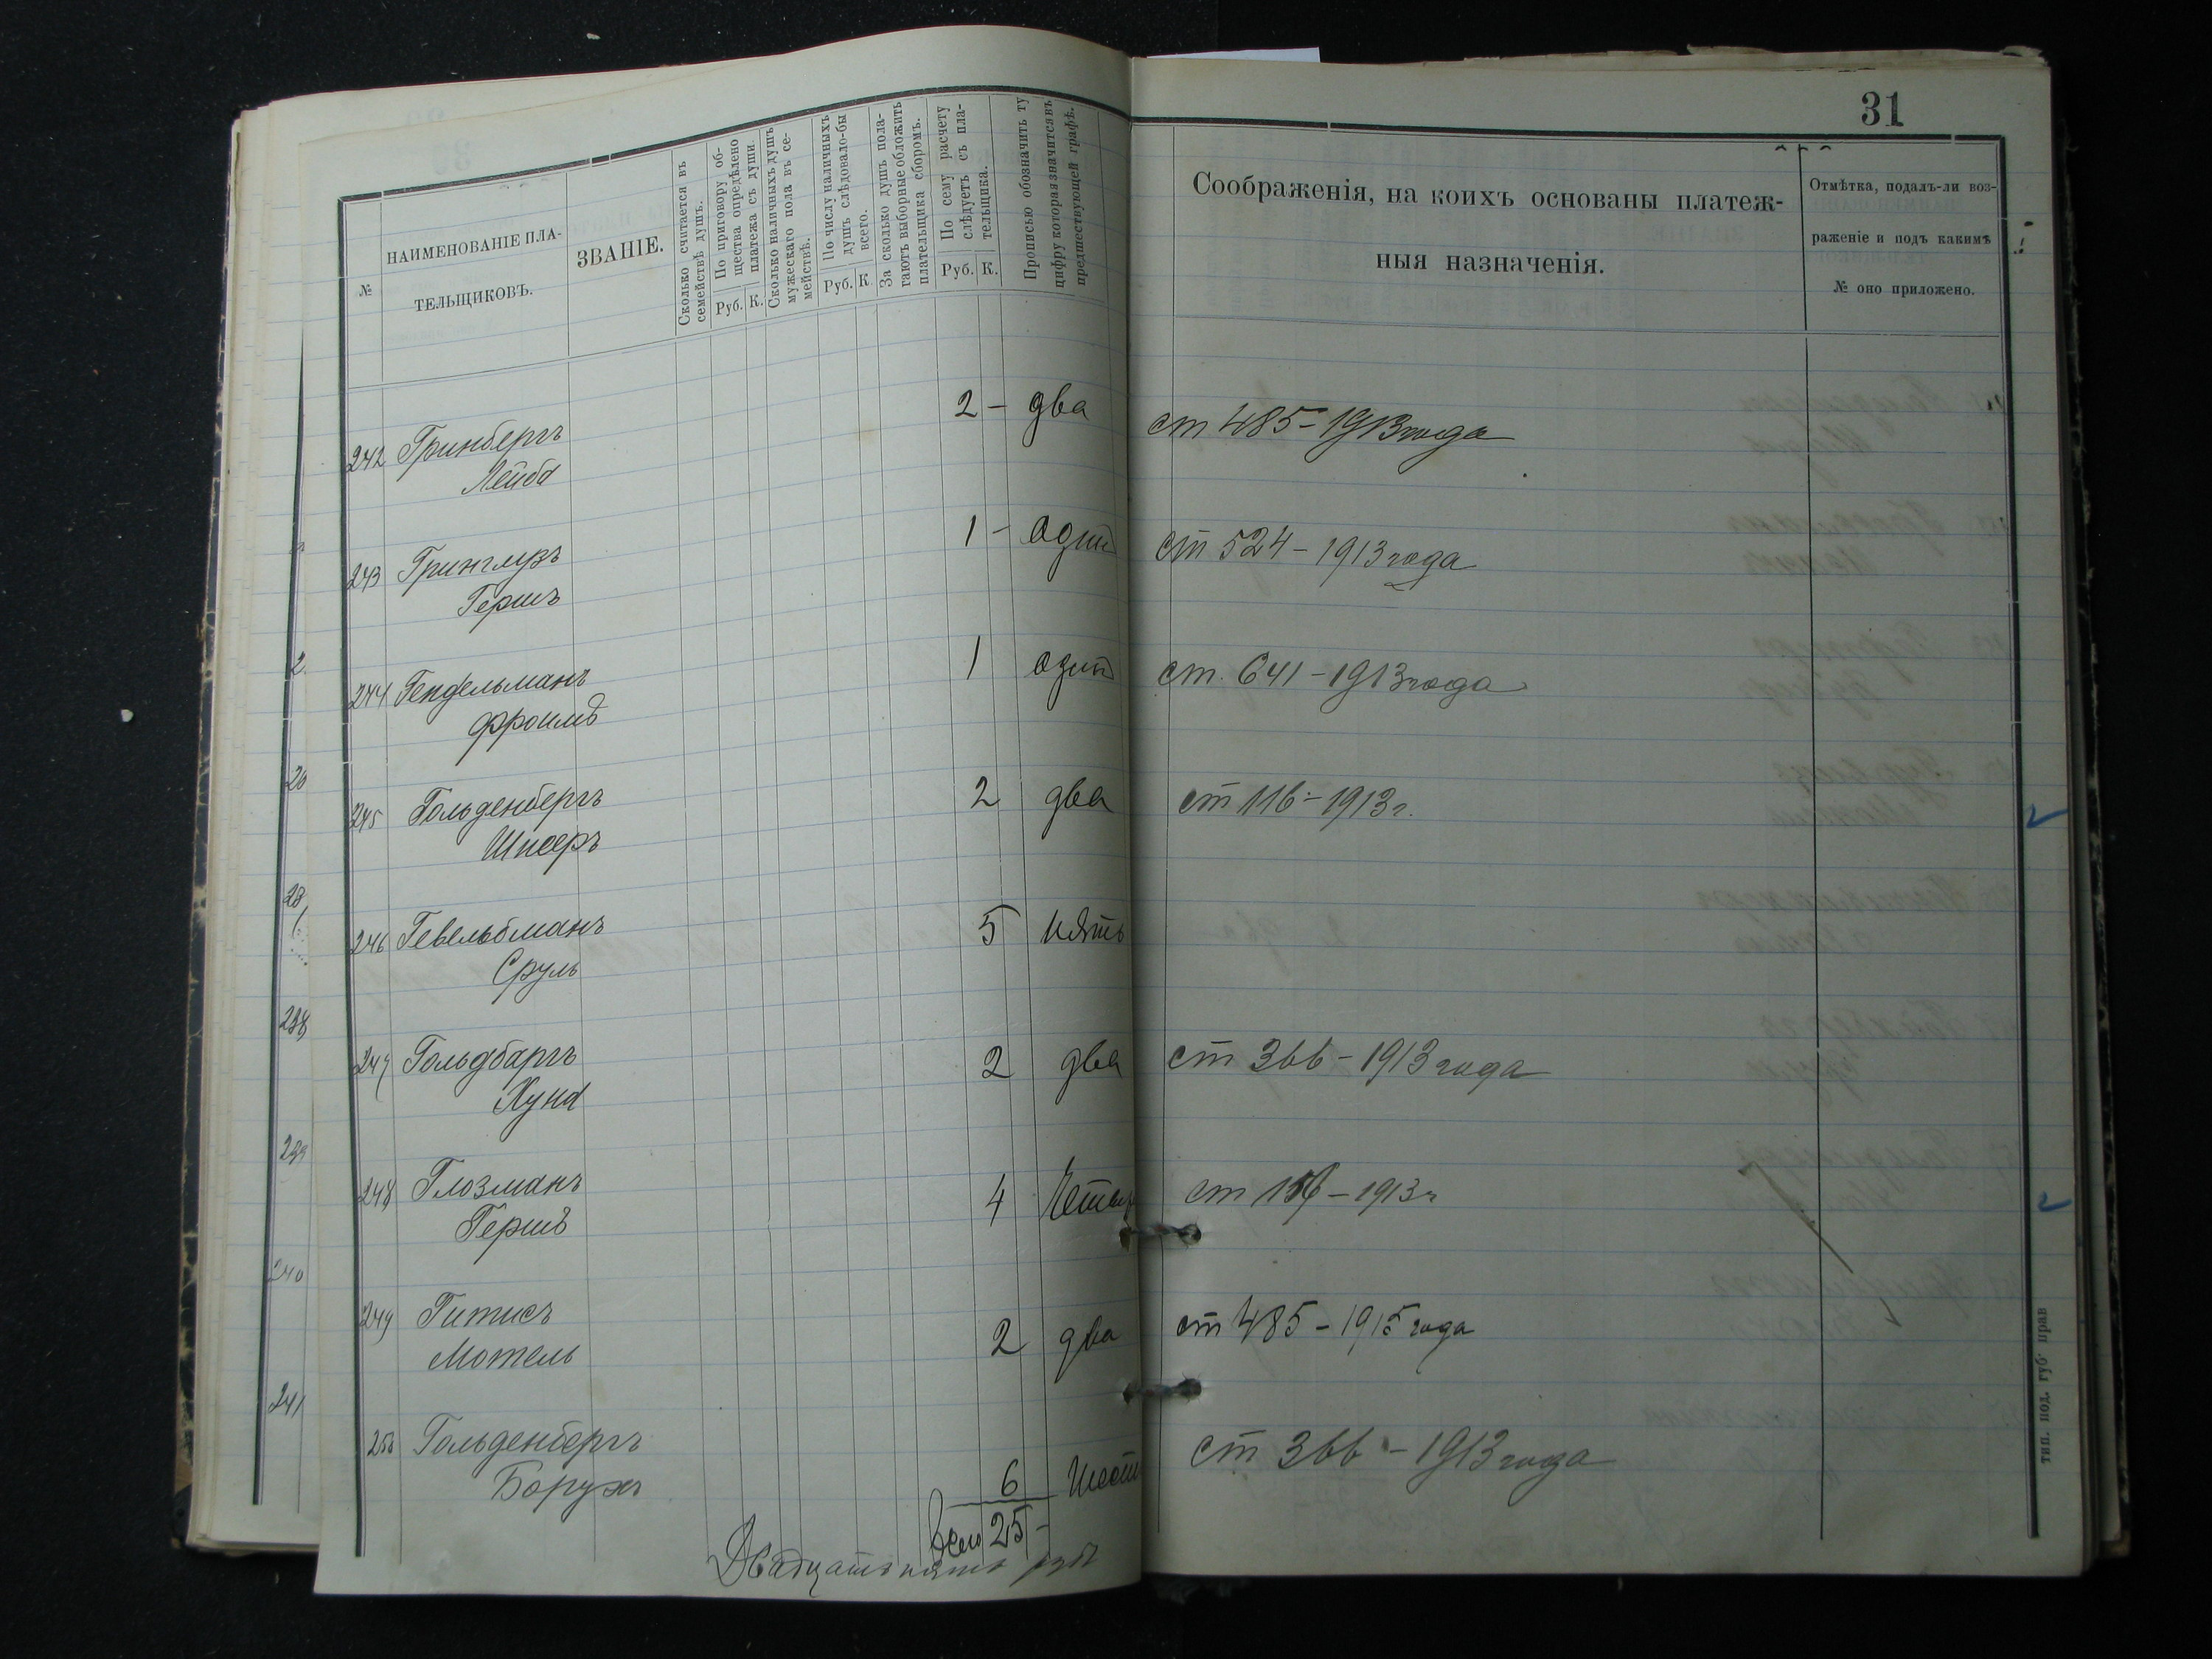 31
№
НАИМЕНОВАНІЕ ПЛА-
ТЕЛЬЩИКОВЪ.
ЗВАНІЕ.
Сколько считается въ
семействѣ душъ.
По приговору об-
щества опредѣлено
платежа съ души.
Руб. К.
Сколько наличныхъ душъ
мужескаго пола въ се-
мействѣ.
По числу наличныхъ
душъ слѣдовало-бы
всего.
Руб. К
За сколько душъ пола-
гаютъ выборные обложить
плательщика сборомъ.
По сему расчету
слѣдуетъ съ пла-
тельщика.
Руб. К.
Прописью обозначить ту
цифру которая значится въ
предшествующей графѣ.
Соображенія, на коихъ основаны платеж-
ныя назначенія.
Отмѣтка, подалъ-ли воз-
раженіе и подъ какимъ
№ оно приложено.
242 Гринбергъ 2 – два ст 485 – 1913 года
Лейба
243 Гринглузъ 1 – один ст 524 – 1913 года
Гершъ
244 Гендельманъ 1 один ст. 641 – 1913 года
Фроимъ
245 Гольденбергъ 2 два ст 116 – 1913 г.
Шнеръ
246 Гевельбманъ 5 пять
Сруль
247 Гольдбаргъ 2 два ст 366 – 1913 года
Хуна
248 Глозманъ 4 Четыр ст – 1913 г
Гершъ
249 Гитисъ 2 два ст 485 – 1915 года
Мотель
250 Гольденбергъ 6 Шест ст 366 – 1913 года
Борухъ
Всего 25 –
Двадцать пять руб
2
20
28
238
239
240
241
тип. под. губ. прав